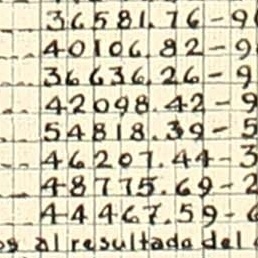 36581.76-9
40106.82-9
36636.26-9
42098.42-9
54818.39-5
46207.44-3
48775.69-2
44467.59-6
os al resultado del